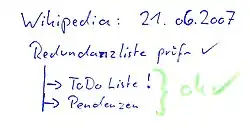 Wikipedia: 21.06.2007
Redundanzliste prüfen ✓
→ ToDo Liste!
→ Pendenzen
ok ✓